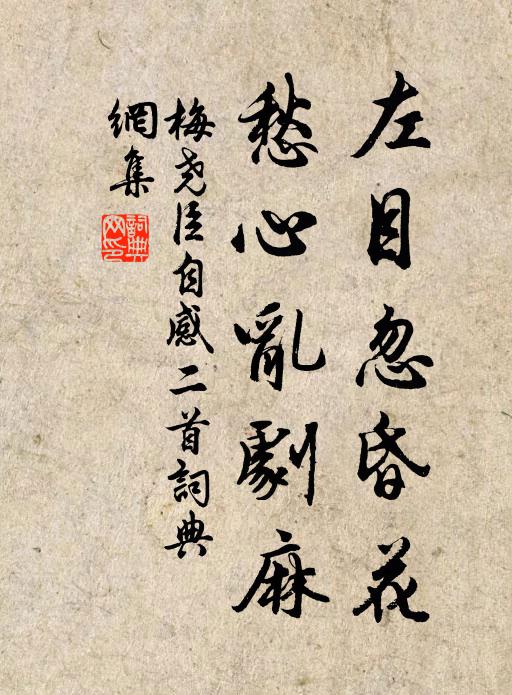 左目忽昏花
愁心亂劇麻
梅尧臣自感二首詞典
網集
詞典
网印